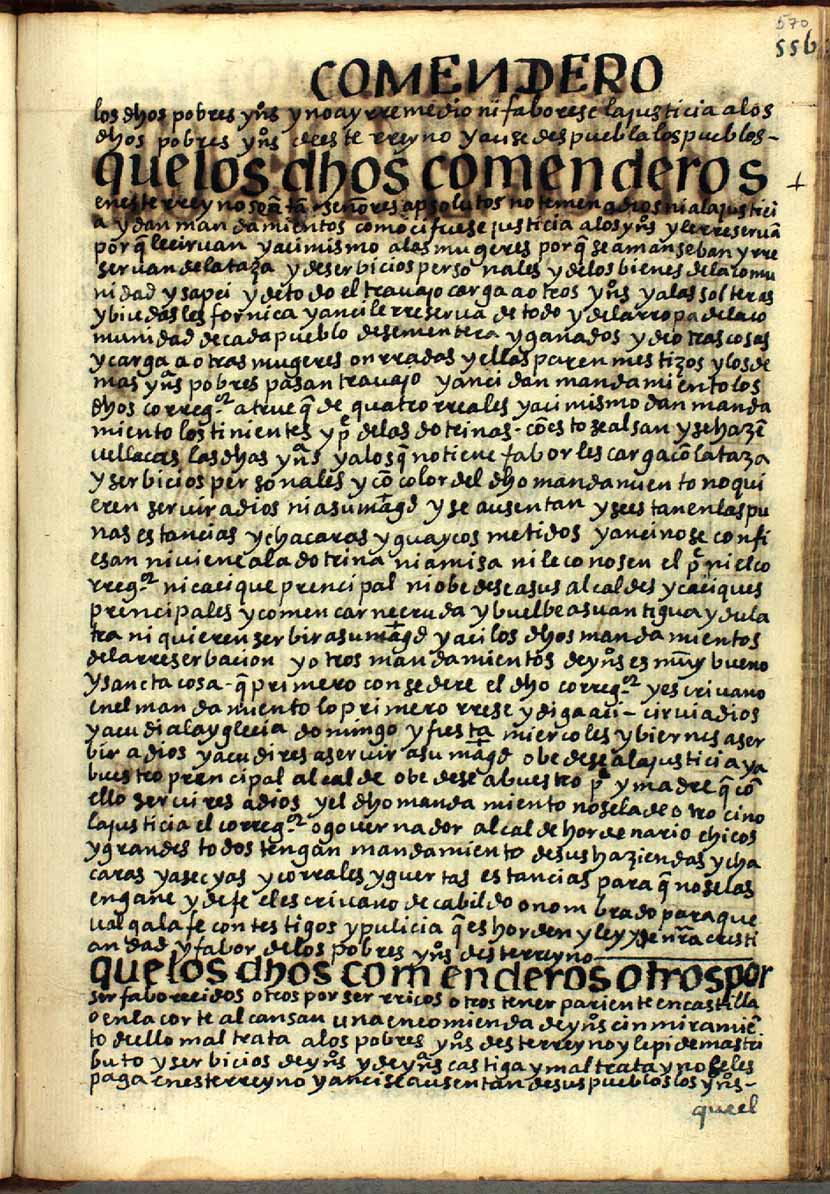 570
556
COMENDERO
los dhos pobres yños y no ay rremedio ni faborese la justicia a los
dhos pobres yños deeste rreyno y ause despuebla los pueblos-
que los dhos comenderos
en este rreyno señores apsolutos no temen a dios ni a la justici
a y dan mandamientos como ci fuese justicia a los yños y le rreseruã
porq̃ le ciruan y acimismo a las mugeres porq̃ se amanseban y rre
seruan de la taza y de serbicios personales y de los bienes de la comu
nidad y sapci y de todo el trauajo carga a otros yños y a las solteras
y biudas les fornica y anci le rreserua de todo y de la rropa de la co
munidad de cada pueblo de sementera y ganados y de otras cosas
y carga a otras mugeres onrradas y ellas paren mestizos y los de
mas yños pobres pasan trauajo y anci dan mandamiento los
dhos correg.or a trueq̃ de quatro rreales y acimismo dan manda
miento los tinientes y p.e de las dotrinas - cõ esto se alsan y se hazẽ
uellacas las dhas yñas y a los q̃ no tiene fabor les carga cõ la taza
y serbicios personales y cõ color del dho mandamiento no qui
eren seruir a dios ni a su mag̃d y se ausentan y se estan en las pu
nas estancias y chacaras y guaycos metidos y anci no se confi
esan ni uiene a la dotrina ni a misa ni le conosen el p.e ni el co
rreg.or ni cacique prencipal ni obedese a sus alcaldes y caciques
prencipales y comen carne cruda y buelbe a su antigua ydula
tra ni quieren serbir a su mag̃d y aci los dhos mandamientos
de la rreserbacion y otros mandamientos de yños es muy bueno
y sancta cosa - q̃ primero consedere el dho correg.or y escriuano
en el mandamiento lo primero rrese y diga aci - cirui a dios
y acudi a la yglecia domingo y fiesta miercoles y biernes a ser
bir a dios y acudires a seruir a su mag̃d obedese a la justicia y a
buestro prencipal alcalde obedese a buestro p.e y madre q̃ cõ
ello seruires a dios y el dho mandamiento no se la de otro cino
la justicia el correg.or o gouernador alcalde hordenario chicos
y grandes todos tengan mandamiento de sus haziendas y cha
caras y asecyas y corrales y guertas estancias para q̃ no se las
engañe y de fe el escriuano de cabildo o nombrado para que
ualga la fe con testigos y pulicia q̃ es horden y ley y de nr̃a cristi
andad y fabor de los pobres yños deste rreyno
que los dhos comenderos otros por
ser faborecidos otros por ser rricos otros tener pariente en castilla
o en la corte alcansan una encomienda de yños cin miramiẽ
to de ello maltrata a los pobres yños deste rreyno y le pide mas tri
buto y serbicios de yños y de yñas castiga y maltrata y no se les
paga en este rreyno y anci se ausentan de sus pueblos los yños-
que el